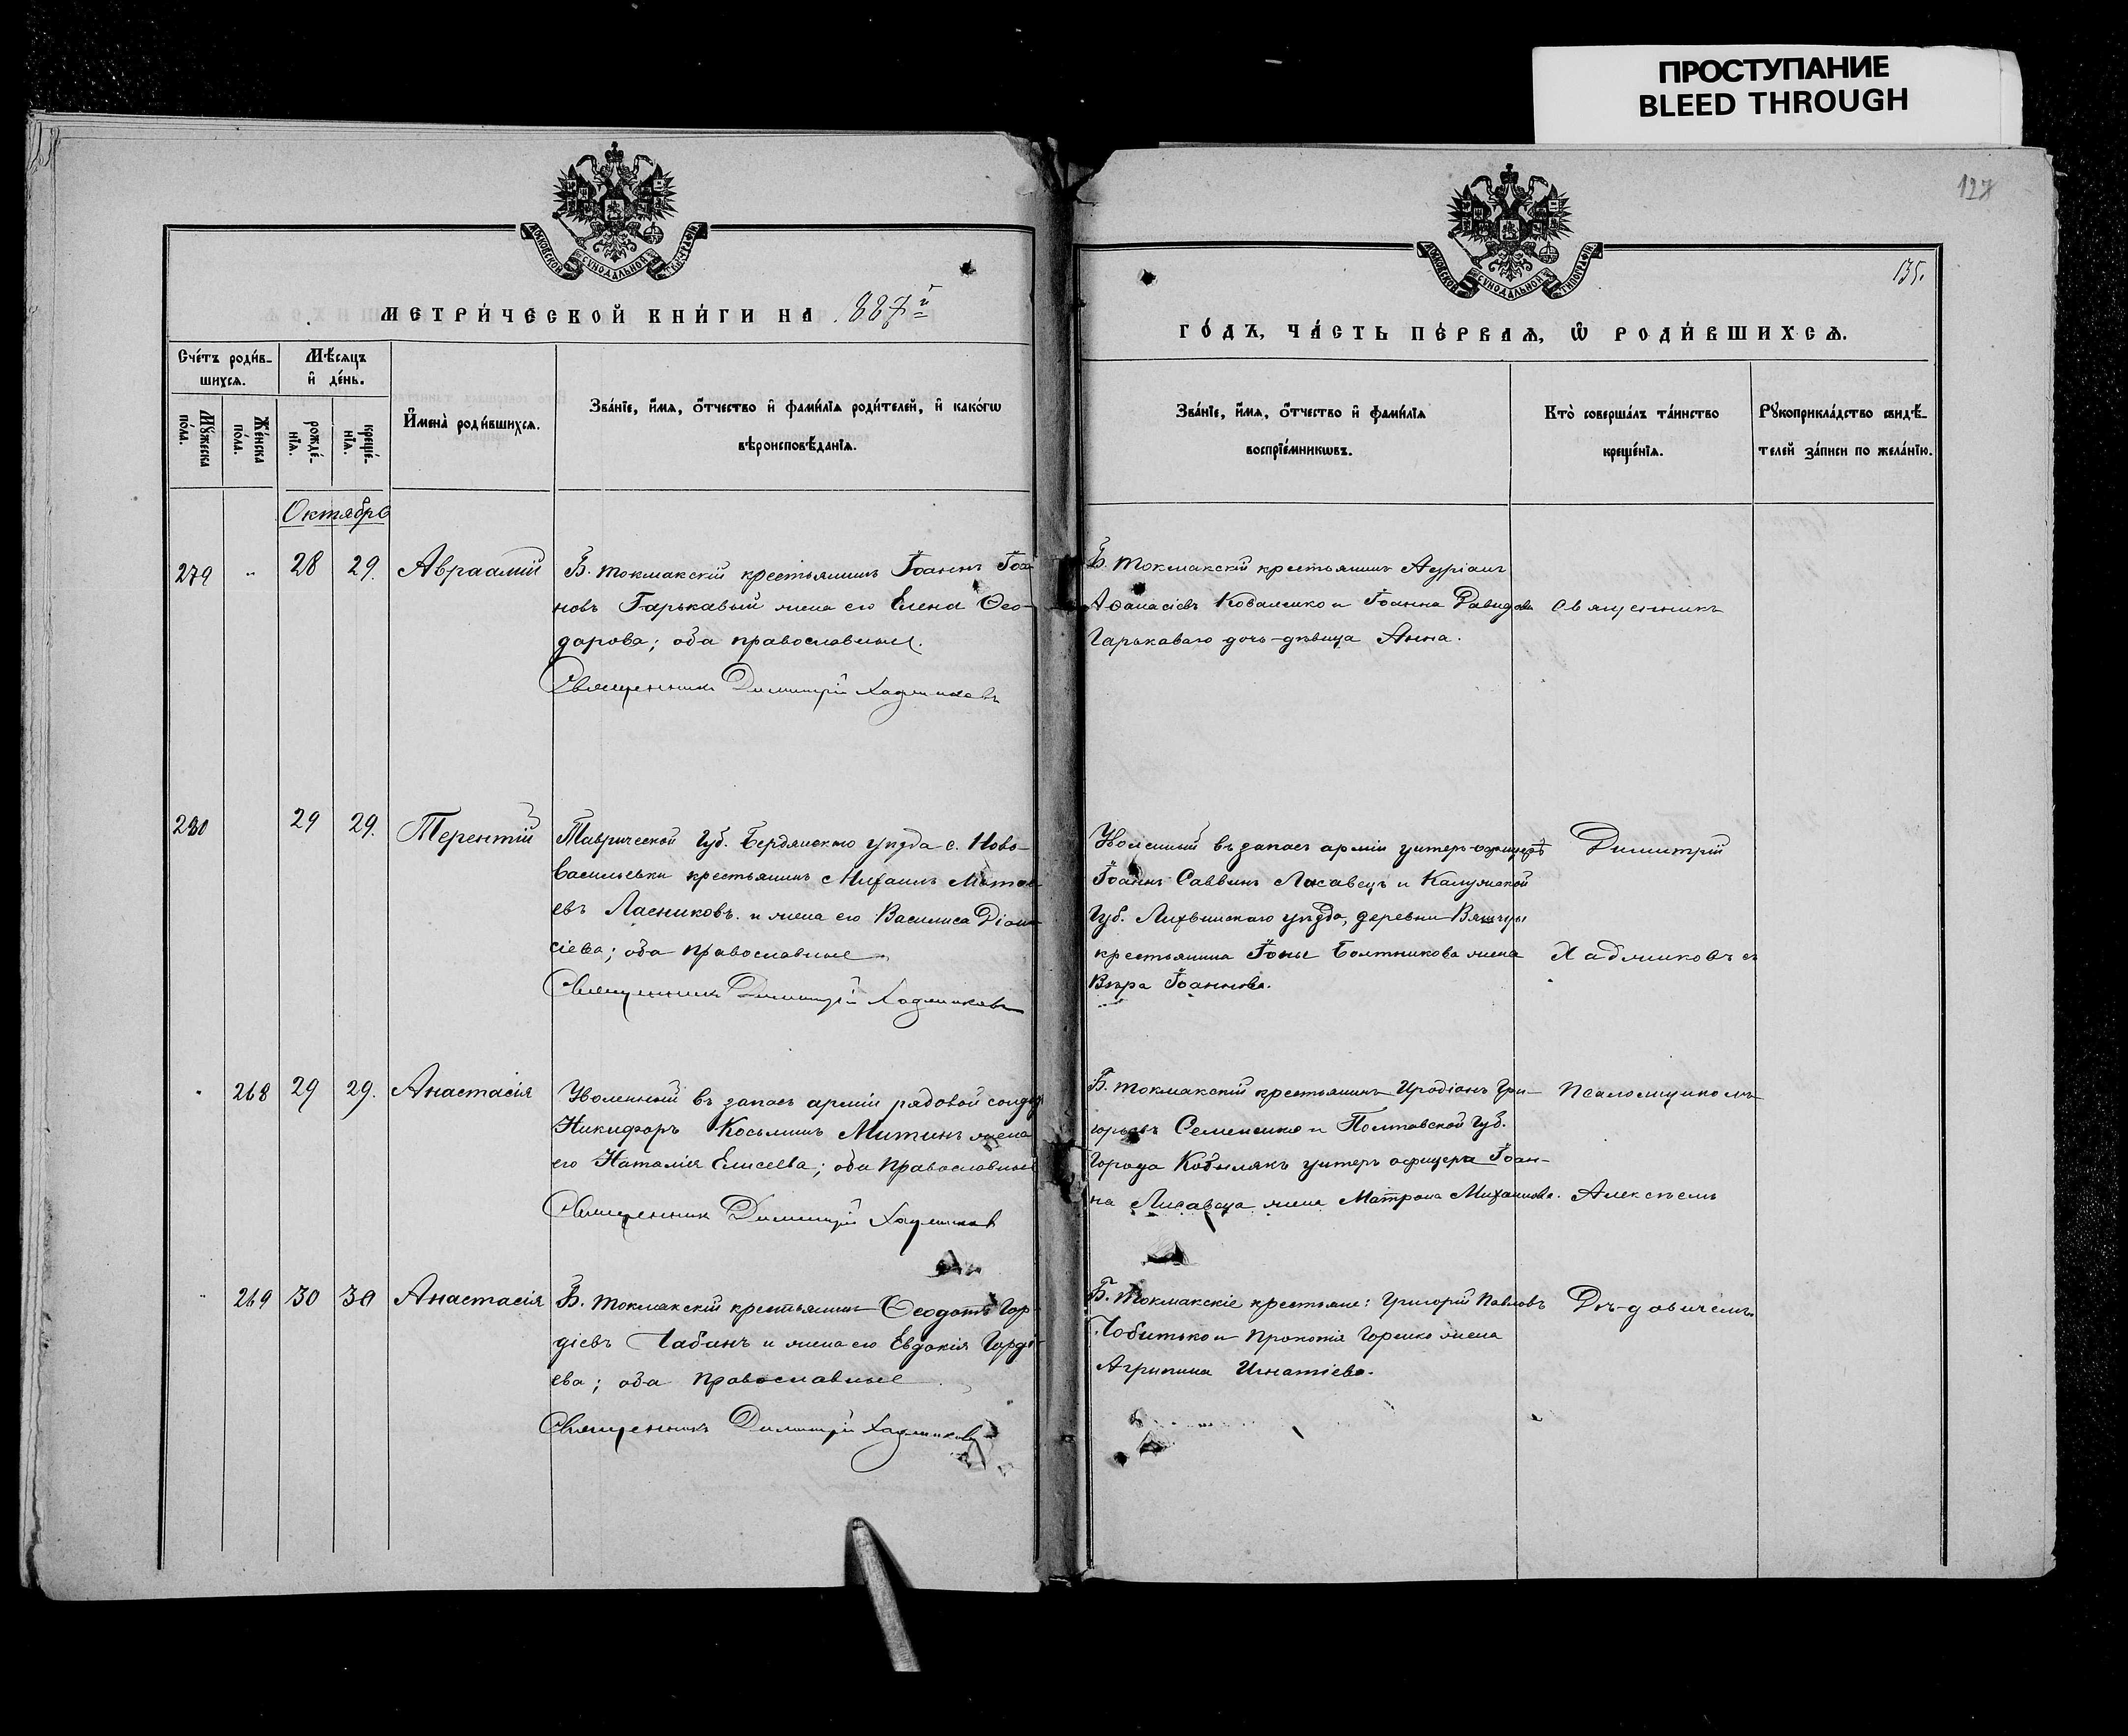 ПРОСТУПАНИЕ
BLEED THROUGH
127
135.
МОСКОВСКОЙ СУНОДАЛЬНОЙ ТИПОГРАФІИ
МОСКОВСКОЙ СУНОДАЛЬНОЙ ТИПОГРАФІИ
МЕТРИ́ЧЕСКОЙ КНИ́ГИ НА 1887 й
ГО́ДЪ, ЧА́СТЬ ПЕ́РВАѦ, Ѿ РОДИ́ВШИХСѦ.
Сче́тъ роди́в-
шихсѧ.
Мѣ́сѧцъ
и҆ де́нь.
Мꙋ́жеска по́ла.
Же́нска по́ла.
рожде́-
нїѧ.
креще́-
нїѧ.
И҆мена̀ роди́вшихсѧ.
Зва́нїе, и҆́мѧ, ѻ҆́тчество и҆ фами́лїѧ роди́телей, и҆ како́гѡ
вѣроисповѣ́данїѧ.
Зва́нїе, и҆́мѧ, ѻ҆́тчество и҆ фами́лїѧ
воспрїе́мникѡвъ.
Кто̀ соверша́лъ та́инство
креще́нїѧ.
Рꙋкоприкла́дство свидѣ́-
телей за́писи по жела́нїю.
Октябрь
279 " 28 29. Авраамій
Б. токмакскій крестьянинъ Іоаннъ Іоан
новъ Гарькавый жена его Елена Ѳео-
дорова; оба православные.
Священникъ Димитрій Хаджиковъ
Б. токмакскій крестьянинъ Адріанъ
Аѳанасіевъ Коваленко и Іоанна Давидова
Гарькаваго дочь-дѣвица Анна.
Священникъ
280 29 29. Терентій
Таврической Губ. Бердянскаго уѣзда с. Ново-
васильевки крестьянинъ Михаилъ Матѳ
евъ Ласниковъ и жена его Василиса Діони
сіева; оба православные
Священникъ Димитрій Хаджиковъ
Уволенный въ запасъ арміи унтеръ-офицеръ
Іоаннъ Саввинъ Лисавецъ и Калужской
Губ. Лихвинскаго уѣзда, деревни
крестьянина Іоны Болтникова жена
Вѣра Іоаннова.
Димитрій
Хаджиковъ съ
" 268 29 29. Анастасія
Уволенный въ запасъ арміи рядовой солдатъ
Никифоръ Косьминъ Митинъ жена
его Наталія Елисеева; оба Православные
Священникъ Димитрій Хаджиковъ
Б. токмакскій крестьянинъ Иродіонъ Гри-
горьевъ Семененко и Полтавской Губ.
Города Кобылякъ унтеръ офицера Іоан-
на Лисавеца жена Матрона Михаилова.
Псаломщикомъ
Алексѣемъ
" 269 30 30 Анастасія
Б. токмакскій крестьянинъ Ѳеодотъ Гор
діевъ Чабанъ и жена его Евдокія Горді
ева; оба православные
Священникъ Димитрій Хаджиковъ
Б. Токмакскіе крестьяне: Григорій Павловъ
Чобитько и Прокопія Горенко жена
Агрипина Игнатіева.